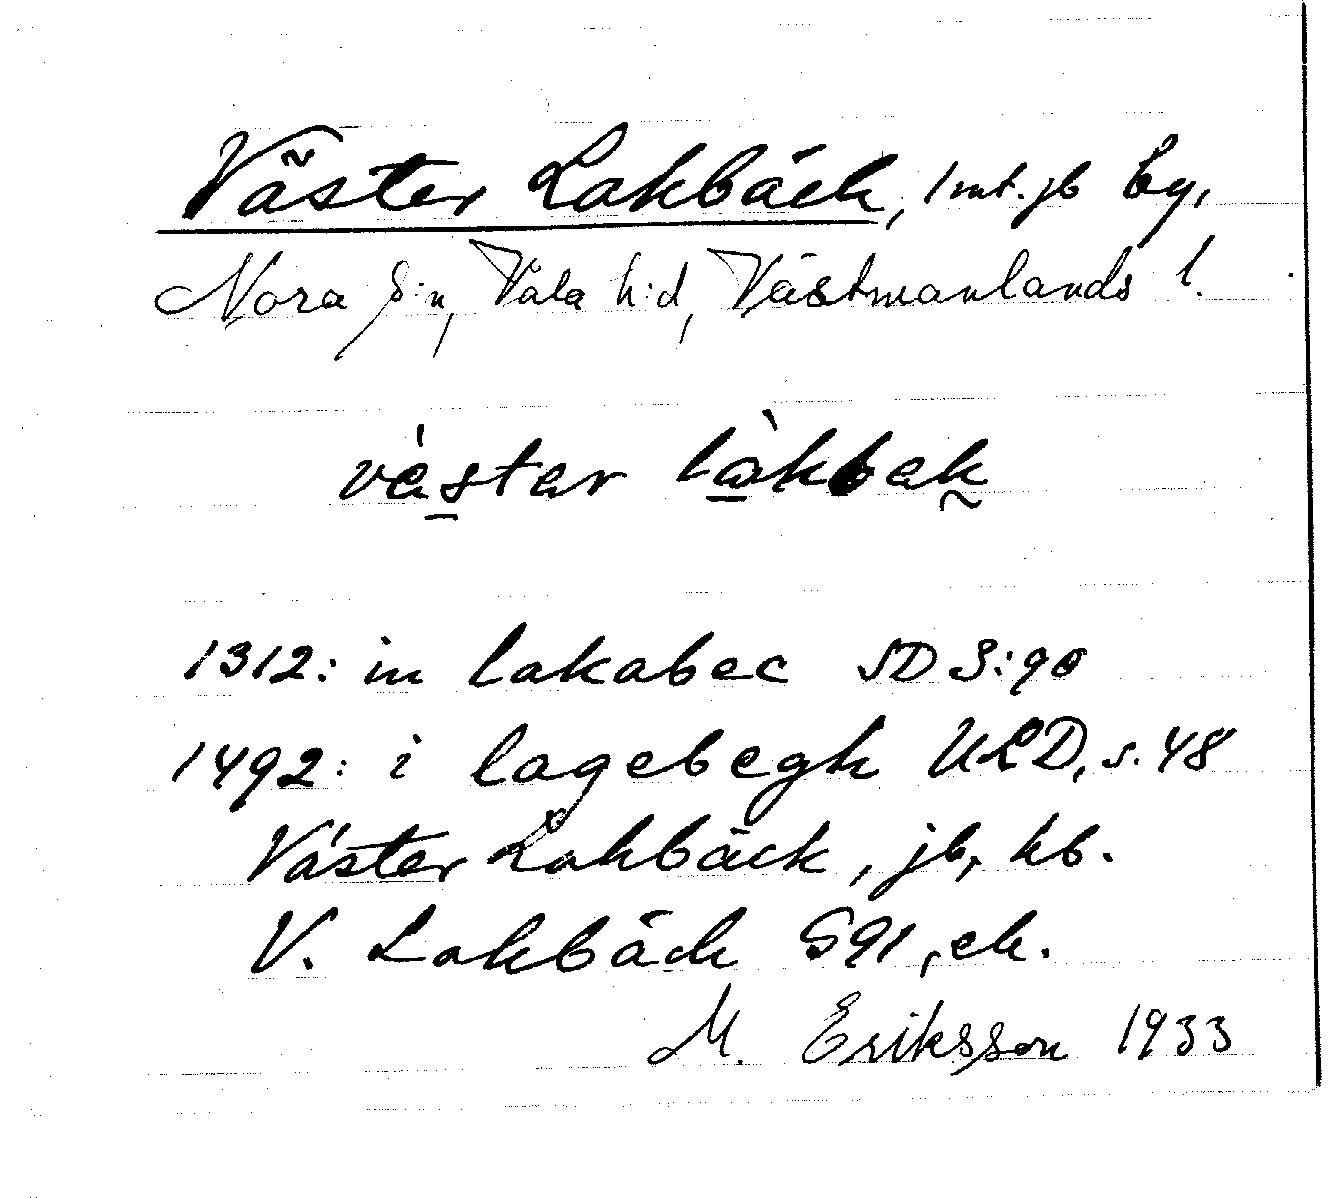 Väster Lakbäck, 1 mt. jb by,
Nora s:n, Våla h:d, Västmanlands l.
vèstər làkbək
1312: in lakabec SD 3:90
1492: i lagebegh ULD, s. 48
Väster Lakbäck, jb, kb.
V. Lakbäck S91, ek.
M. Eriksson 1933